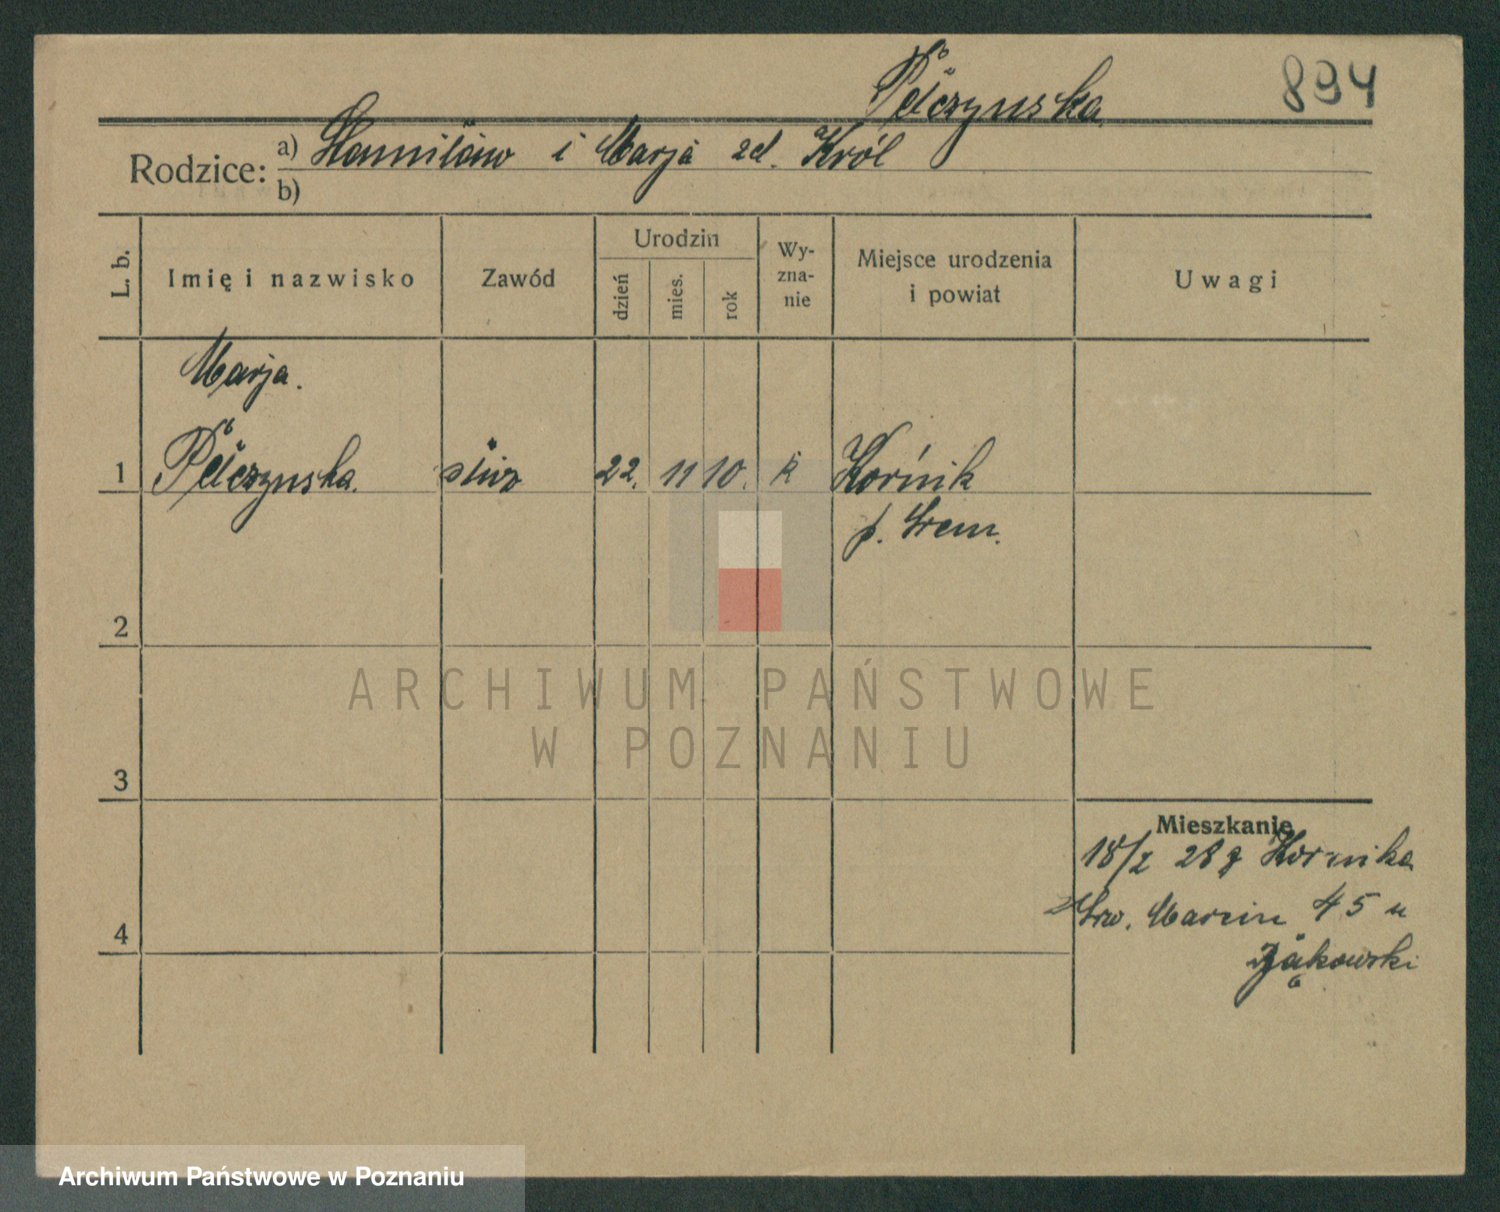 Pelczynska
894
Rodzice:
a) Stanisław i Marja zd. Król
b)
L. b.
Imię i nazwisko
Zawód
Urodzin
dzień
mies.
rok
Wy-
zna-
nie
Miejsce urodzenia
i powiat
Uwagi
Marja.
1 Pelczynska. służ 22. 11 10. k Kórnik
p. Śrem.
2
3
4
Mieszkanie
18/2 28 z Kornika
Św. Marcin 45 u
Żakowski
ARCHIWUM PAŃSTWOWE
W POZNANIU
Archiwum Państwowe w Poznaniu